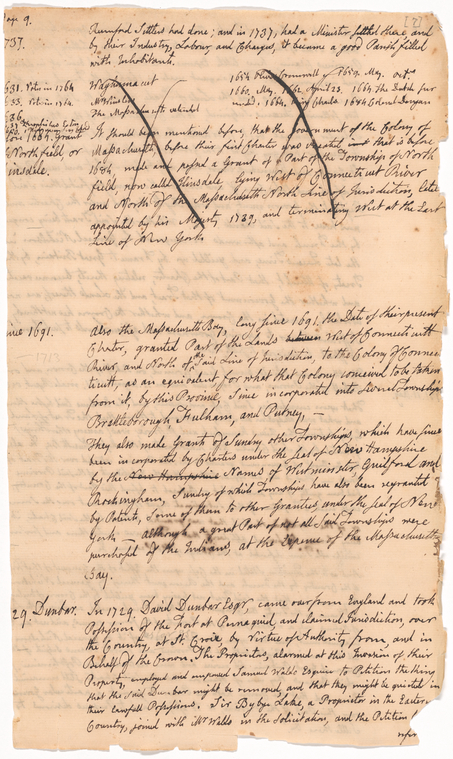 Page 9. [2]
Rumford Settlers had done; and in 1737, had a Minister settled there, and
1737. by their Industry, Labour and Charges, it became a good Parish filled
with Inhabitants.
1631. Vote in 1764
33. Vote in
Grant
Northfield, or
Hinsdale.
The Massachusetts extended
1659. May. Octr.
1660. May. April 23. 1664 The Dutch
1664. first Charter 1684 Colonel Dongan
It should been mentioned before, that the Government of the Colony of
Massachusetts before their first Charter was vacated that is before
1684, made and passed a Grant of a Part of the Township of North
field, now called Hinsdale, lying West of Connecticut River
and North of the Massachusetts North Line of Jurisdiction, Extd
appointed by his Majesty 1739, and terminating West at the East
Line of New York
Since 1691. Also the Massachusetts Bay, long since 1691, the Date of their present
Charter, granted Part of the Lands between West of Connecticutt
River, and North of the said Line of Jurisdiction, to the Colony of Connec
ticutt, as an equivalent for what that Colony conceived to be taken
from it, by this Province, Since incorporated into several Townships,
Brattleborough, Fulham, and Putney, —
They also made Grants of Sundry other Townships, which have since
been incorporated by Charters under the Seal of New Hampshire
by the New Hampshire Names of Westminster Guilford and
Rockingham, Sundry of which Townships have also been regranted
by Patents, some of them to other Grantees under the Seal of New
York — although a great Part if not all said Townships were
purchased of the Indians, at the Expence of the Massachusetts
Bay.
29. Dunbar. In 1729. David Dunbar Esqr, came over from England and took
Possession of the Fort at Pemaquid, and claimed Jurisdiction, over
the Country, at St Croix by Virtue of Authority from, and in
Behalf of the Crown. The Proprietors, alarmed at this Invasion of their
Property, employed and impowered Samuel Waldo Esquire to Petition the King
that the said Dunbar might be removed, and that they might be quieted in
their lawfull Possessions. Sir Bybye Lake, a Proprietor in the Eastern
Country, joined with Mr Waldo in the Solicitation, and the Petition
refer